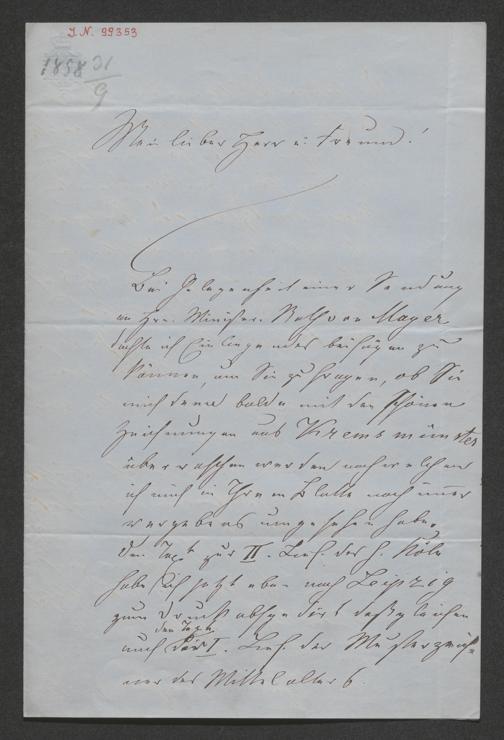 J.N. 99353
1858 31/9
Mein lieber Herr u. Freund!
Bei Gelegenheit einer Sendung
an Hrn. Minister. Rath von Mayer
dachte ich Einliegendes beifügen zu
können, um Sie zu fragen, ob Sie
mich denn bald mit den schönen
Zeichnungen aus Kremsmünster
überraschen werden nach welchen
ich mich in Ihrem Blatte noch immer
vergebens umgesehen habe.
Den Text zur II. Lief. des h. Köln
habe ich jetzt eben nach Leipzig
zum Druck abgesandt desgleichen
auch den Text
I. Lief. der Musterzeich-
ner des Mittelalters.